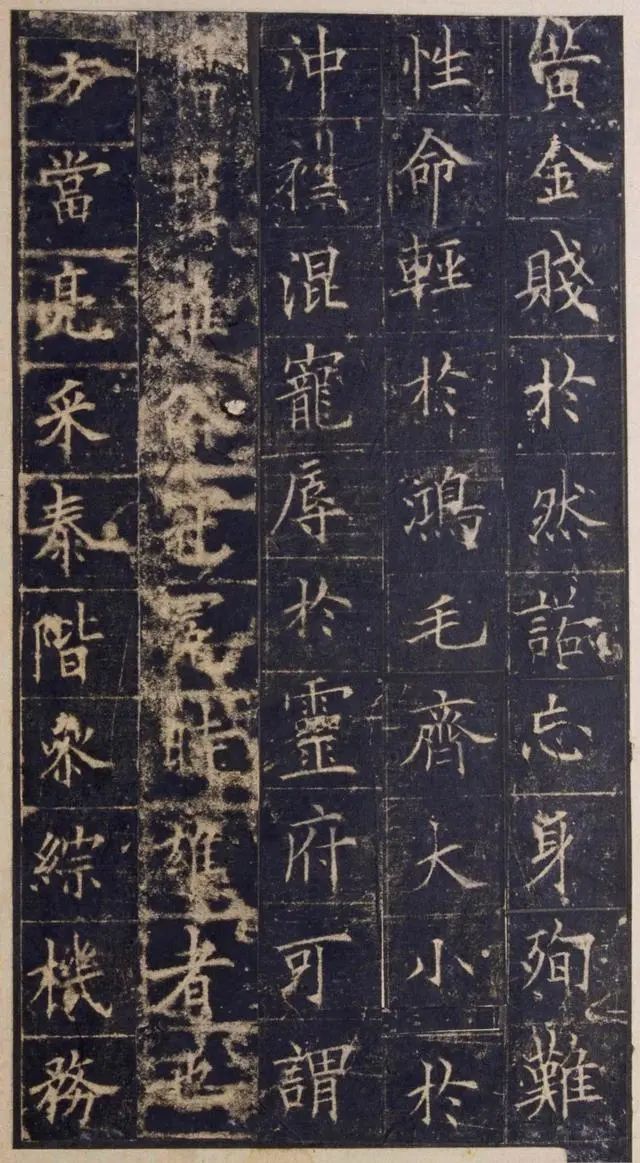 黄金賤於然諾忘身殉難
性命輕於鴻毛齊大小於
沖襟混寵辱於靈府可謂
命世雄者也
方當亮采泰階參綜機務